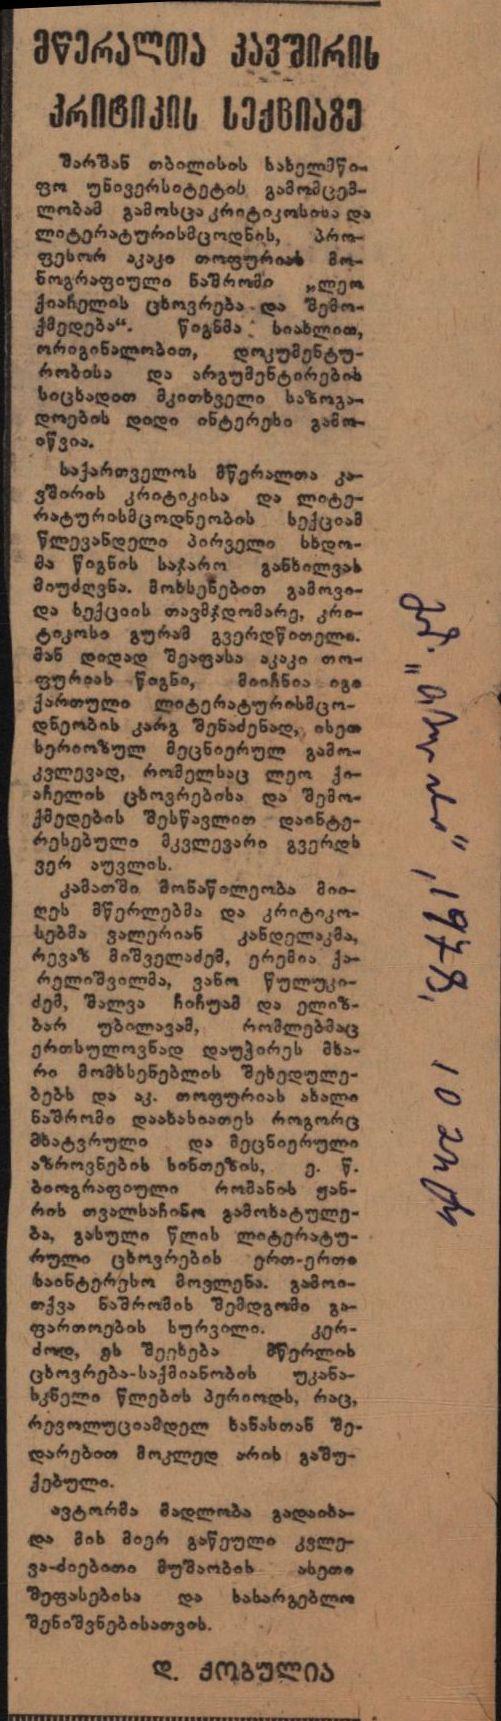 მწერალთა კავშირის
კრიტიკის სექციაზე
შარშან თბილისის სახელმწი-
ფო უნივერსიტეტის გამომცემ-
ლობამ გამოსცა კრიტიკოსისა და
ლიტერატურისმცოდნის, პრო-
ფესორ აკაკი თოფურიას მო-
ნოგრაფიული ნაშრომი „ლეო
ქიაჩელის ცხოვრება და შემო-
ქმედება“. წიგნმა სიახლით,
ორიგინალობით, დოკუმენტუ-
რობისა და არგუმენტირების
სიცხადით მკითხველი საზოგა-
დოების დიდი ინტერესი გამო-
იწვია.
საქართველოს მწერალთა კა-
ვშირის კრიტიკისა და ლიტე-
რატურისმცოდნეობის სექციამ
წლევანდელი პირველი სხდო-
მა წიგნის საჯარო განხილვას
მიუძღვნა. მოხსენებით გამოვი-
და სექციის თავმჯდომარე, კრი-
ტიკოსი გურამ გვერდწითელი.
მან დიდად შეაფასა აკაკი თო-
ფურიას წიგნი, მიიჩნია იგი
ქართული ლიტერატურისმცო-
დნეობის კარგ შენაძენად, ისეთ
სერიოზულ მეცნიერულ გამო-
კვლევად, რომელსაც ლეო ქი-
აჩელის ცხოვრებისა და შემო-
ქმედების შესწავლით დაინტე-
რესებული მკვლევარი გვერდს
ვერ აუვლის.
კამათში მონაწილეობა მიი-
ღეს მწერლებმა და კრიტიკო-
სებმა ვალერიან კანდელაკმა,
რევაზ მიშველაძემ, ერემია ქა-
რელიშვილმა, ვანო წულუკი-
ძემ, შალვა ჩიჩუამ და ელიზ-
ბარ უბილავამ, რომლებმაც
ერთსულოვნად დაუჭირეს მხა-
რი მომხსენებლის შეხედულე-
ბებს და აკ. თოფურიას ახალი
ნაშრომი დაახასიათეს როგორც
მხატვრული და მეცნიერული
აზროვნების სინთეზის, ე. წ.
ბიოგრაფიული რომანის ჟან-
რის თვალსაჩინო გამოხატულე-
ბა, გასული წლის ლიტერატუ-
რული ცხოვრების ერთ-ერთი
საინტერესო მოვლენა. გამოი-
თქვა ნაშრომის შემდგომი გა-
ფართოების სურვილი. კერ-
ძოდ, ეს შეეხება მწერლის
ცხოვრება-საქმიანობის უკანა-
სკნელი წლების პერიოდს, რაც,
რევოლუციამდელ ხანასთან შე-
დარებით მოკლედ არის გაშუ-
ქებული.
ავტორმა მადლობა გადაიხა-
და მის მიერ გაწეული კვლე-
ვა-ძიებითი მუშაობის ასეთი
შეფასებისა და სასარგებლო
შენიშვნებისათვის.
დ. ქობულია
1978, 10